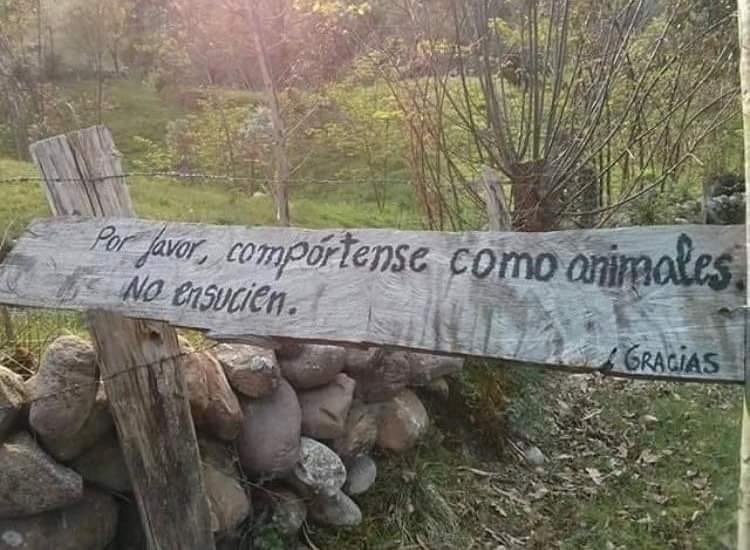 Por favor, compórtense como animales.
No ensucien.
GRACIAS